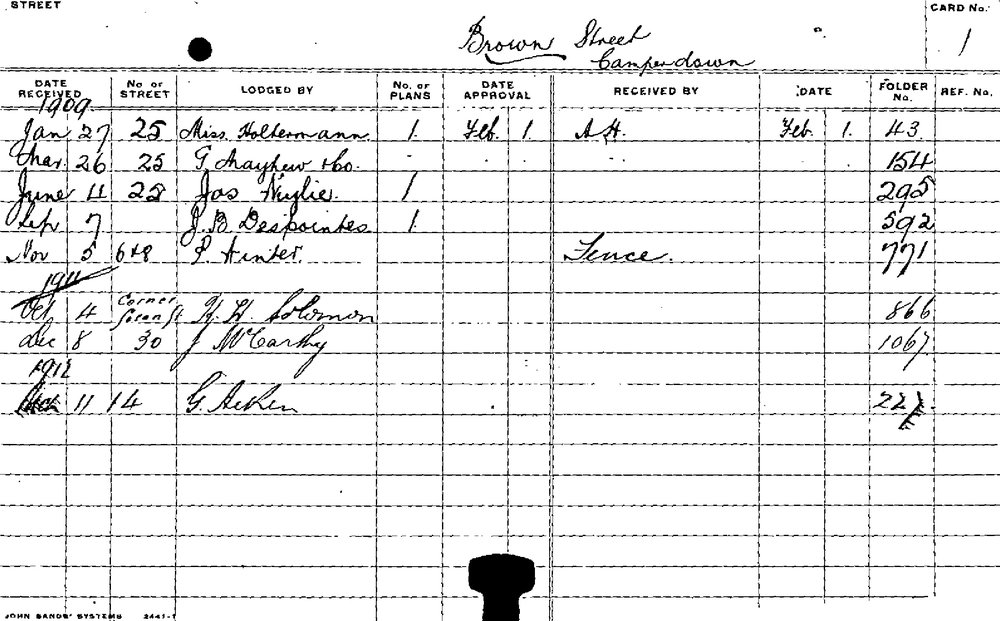 STREET
CARD No.
Brown Street
1
Camperdown
DATE RECEIVED No OF STREET LODGED BY No. OF PLANS DATE APPROVAL RECEIVED BY DATE FOLDER No. REF. No.
1909
Jan 27 25 Miss Holtermann 1 Feb. 1 A.H. Feb. 1. 43
Mar. 26 25 G Mayhew & Co. 154
June 11 25 Jas Wylie. 1 295
Sep 7 J. B. Despointes 1 592
Nov 5 6 & 8 P. Hinter. Fence. 771
1911
Oct 4 Corner Susan St H. W. Solomon 866
Dec 8 30 J McCarthy 1067
1912
11 14 G. Aitken 22
JOHN SANDS' SYSTEMS 2441-1